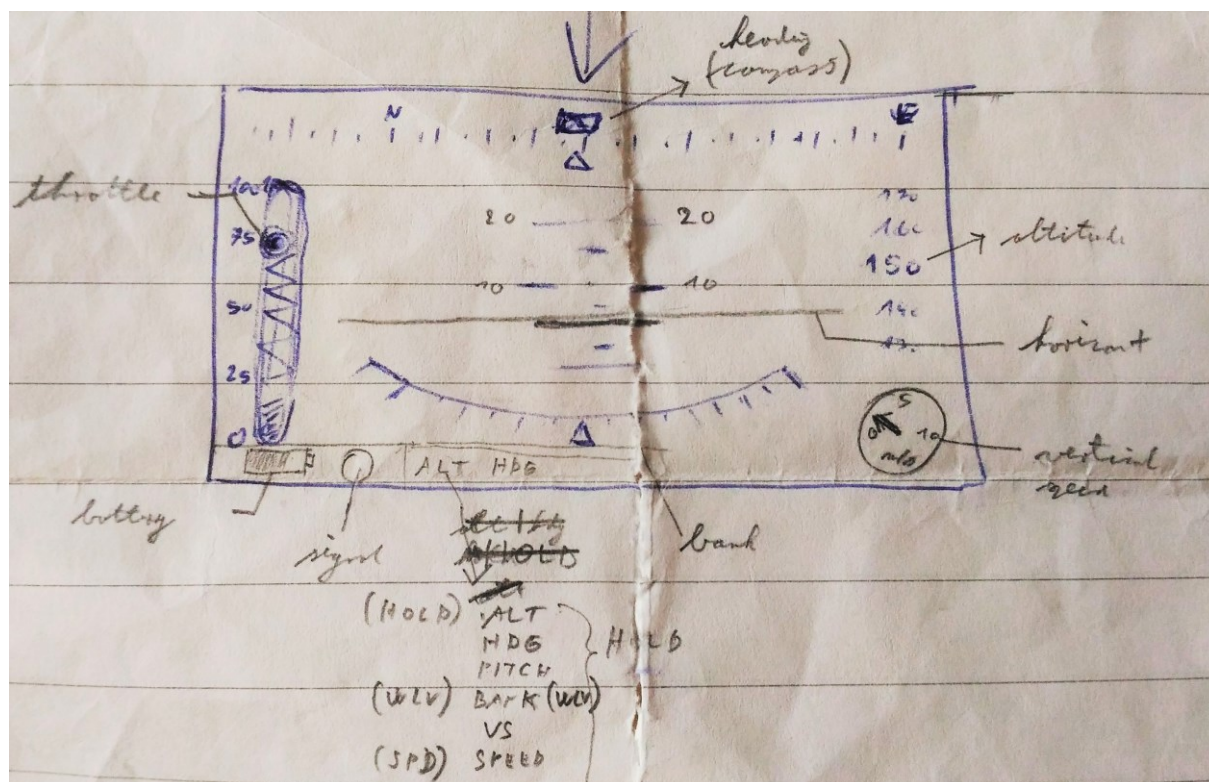 heading
(compass)
N
E
throttle
100
75
50
25
0
20 20
10 10
170
160
150
140
13.
altitude
horizont
5
0 10
m/s
vertical
speed
ALT HDG
battery
signal
bank
HOLD
(HOLD) ALT
HDG HOLD
PITCH
(WLV) BANK (WLV)
VS
(SPD) SPEED